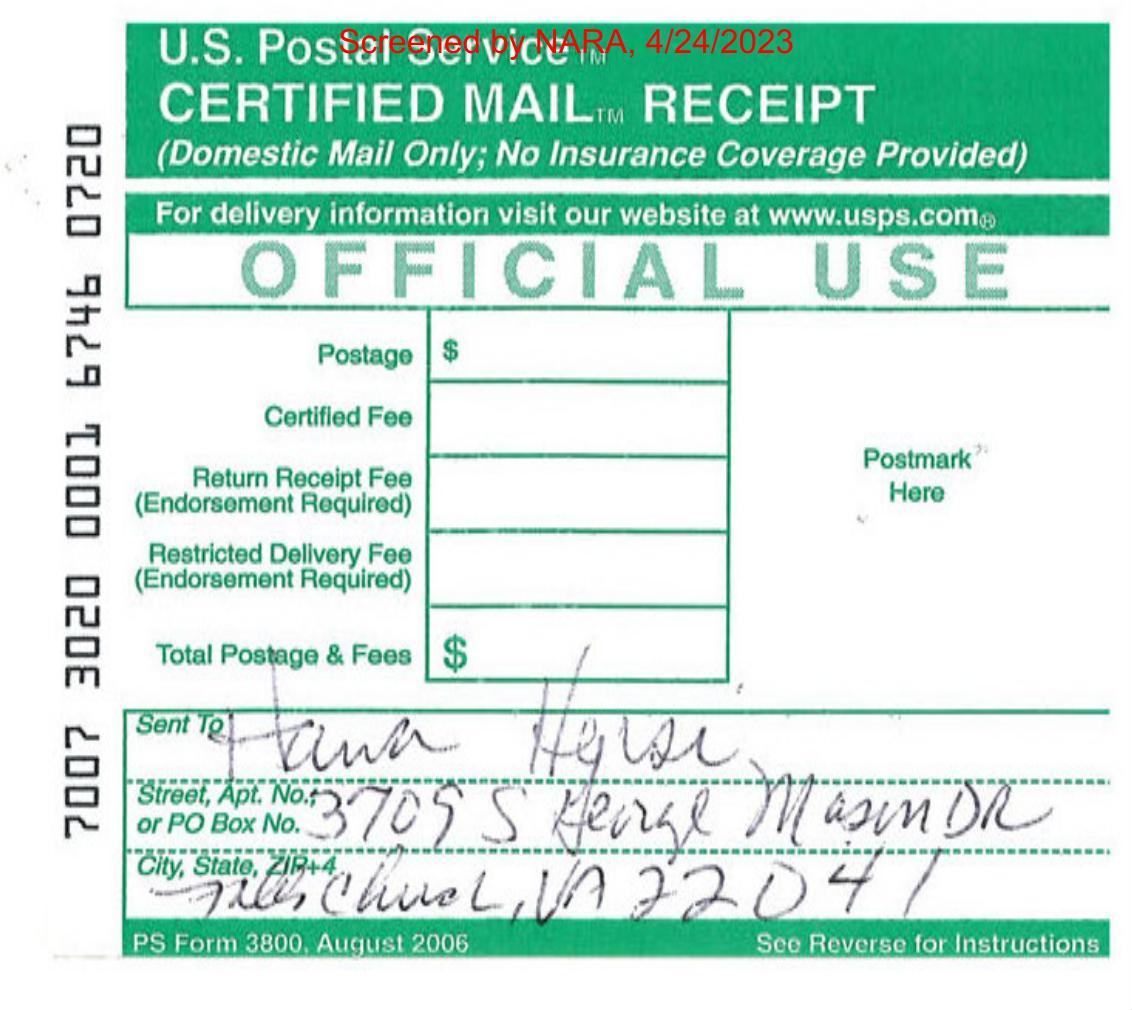 Screened by NARA, 4/24/2023
U.S. Postal Service™
CERTIFIED MAIL™ RECEIPT
(Domestic Mail Only; No Insurance Coverage Provided)
For delivery information visit our website at www.usps.com®
OFFICIAL USE
Postage $
Certified Fee
Return Receipt Fee
(Endorsement Required)
Restricted Delivery Fee
(Endorsement Required)
Total Postage & Fees $
Postmark
Here
7007 3020 0001 6746 0720
Sent To Hana
Street, Apt. No.;
or PO Box No. 3709 S George Mason DR
City, State, ZIP+4
Falls Church, VA 22041
PS Form 3800, August 2006 See Reverse for Instructions